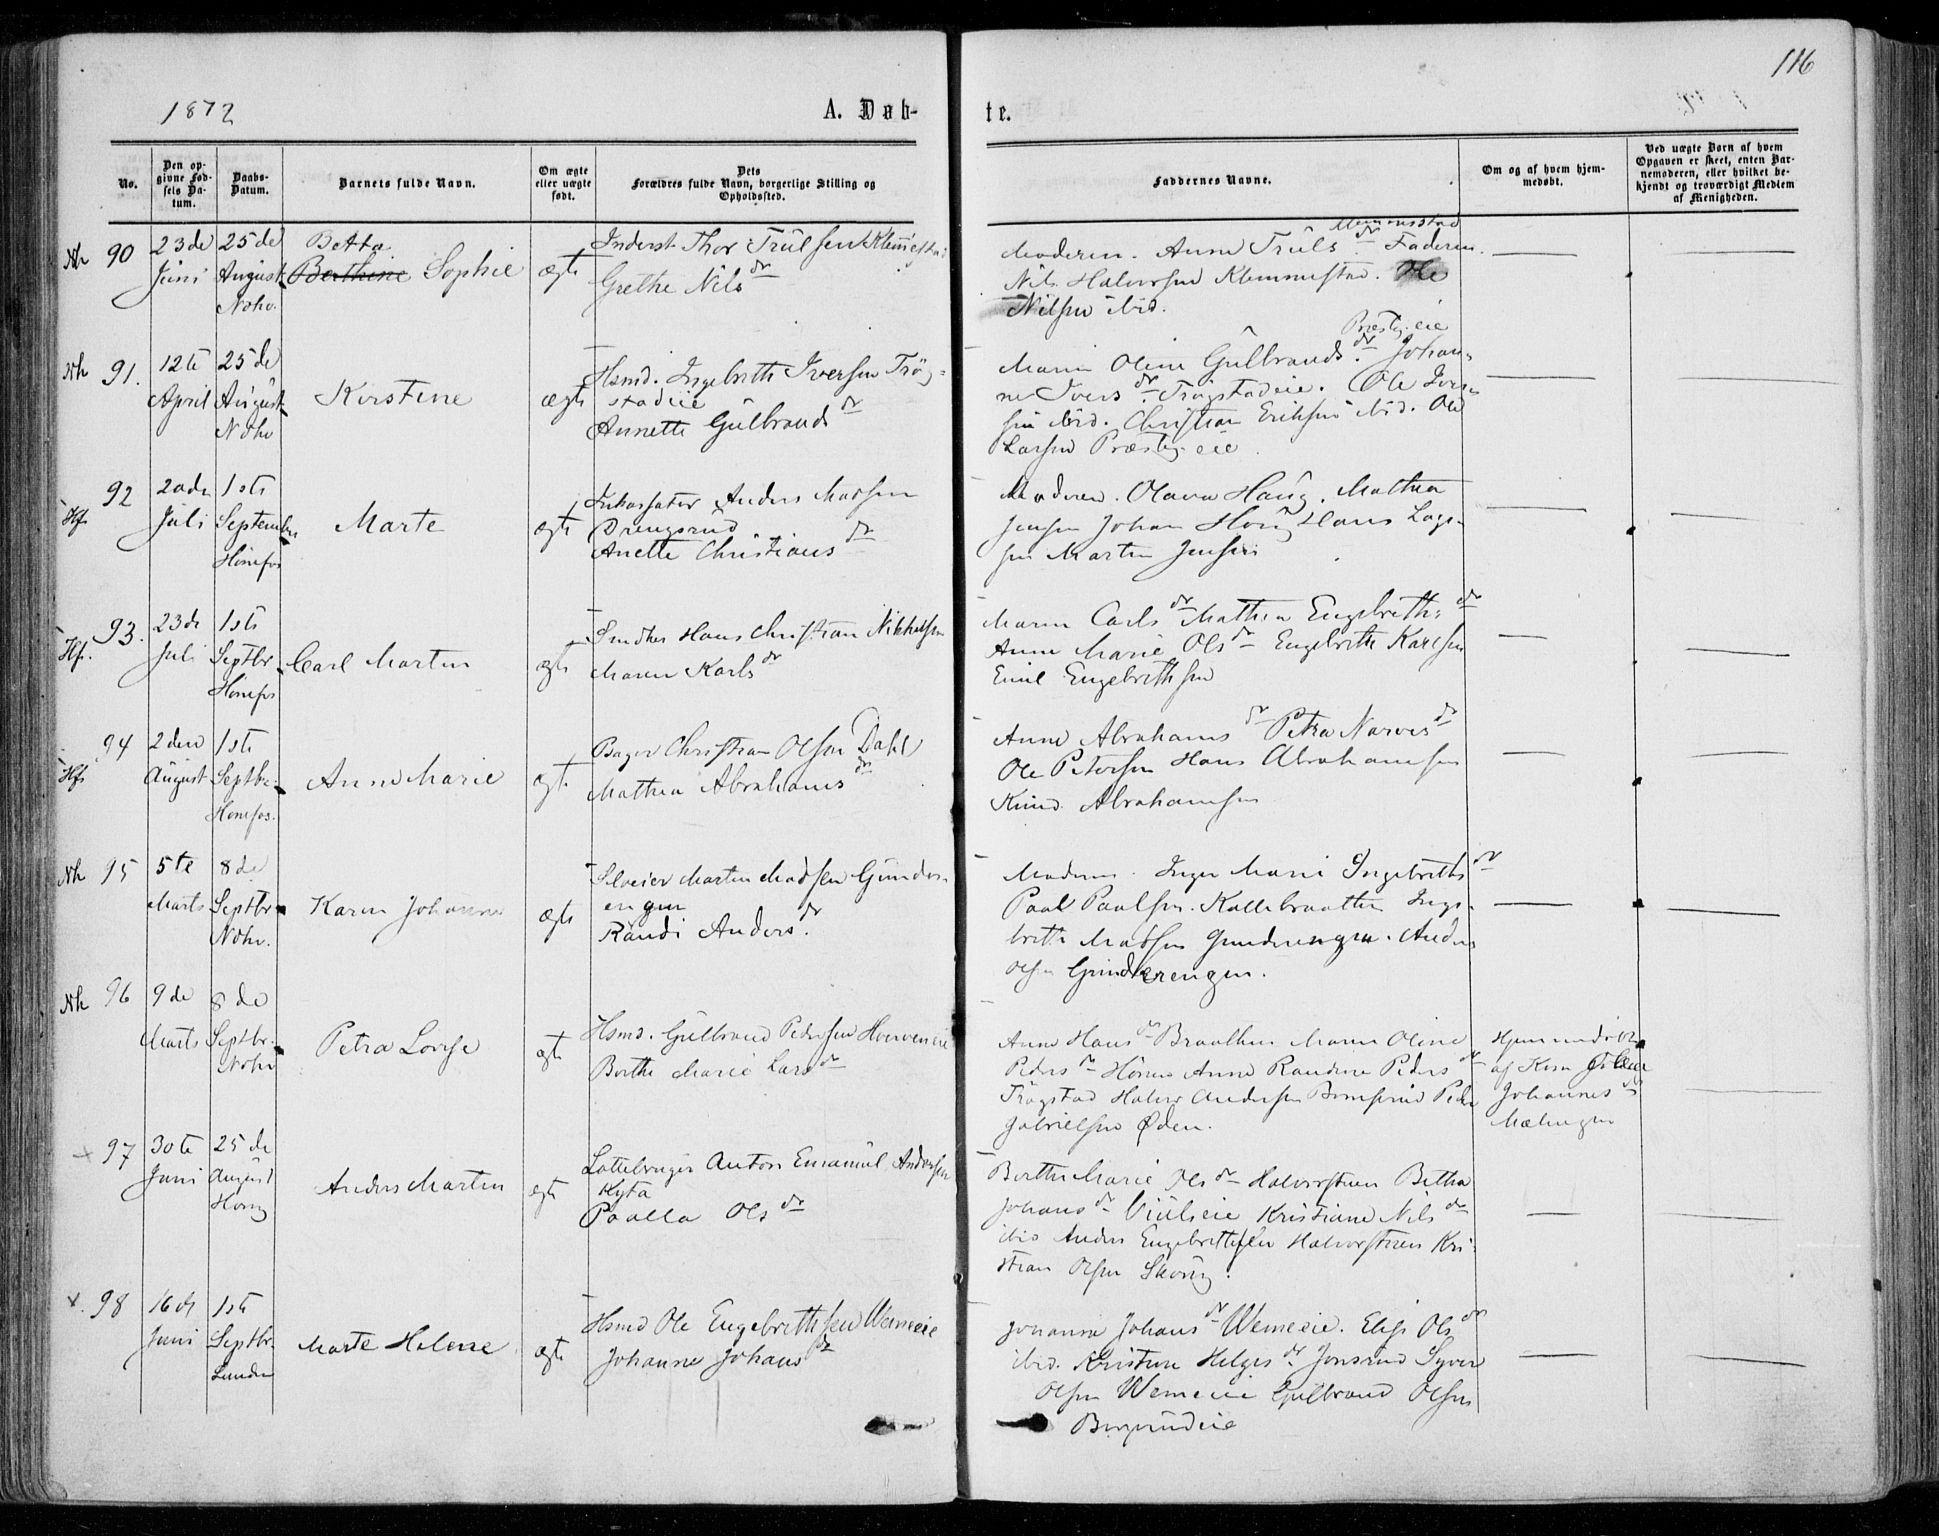 116
1872
A. Døb-
te.
No.
Den op-
givne Fød-
sels Da-
tum.
Daabs-
Datum.
Barnets fulde Navn.
Om ægte
eller uægte
født.
Dets
Forældres fulde Navn, borgerlige Stilling og
Opholdssted.
Faddernes Navne.
Om og af hvem hjem-
medøbt.
Ved uægte Børn af hvem
Opgaven er skeet, enten Bar-
nemoderen, eller hvilket be-
kjendt og troværdigt Medlem
af Menigheden.
Nh 90
23de
Juni
25de
August
Nohv.
Betta
Berthine Sophie
ægte
Inderst Thor Trulsen Klemmestad
Grethe Nils dr
Moderen. Anne Truls dr Faderen
Nils Halvorsen Klemmestad. Ole
Nilsen ibid.
Nh 91.
12te
April
25de
August
Nohv
Kirstine
ægte
Hsmd. Ingebreth Iversen Trøg-
stadeie
Annette Gulbrands dr
Præstg.eie
Maren Oline Gulbrands dr Johan-
ne Ivers dr Trøgstadeie. Ole Iver-
sen ibid. Christian Eriksen ibid. Ole
Larsen Præstg.eie.
Hf. 92
20de
Juli
1ste
September
Hønefos
Marte
ægte
Inkassator Anders Madsen
Anette Christians dr
Moderen. Olava Haug. Mathea
Jensen Johan Haug Hans Lars-
sen Martin Jensen
Hf. 93.
23de
Juli
1ste
Septbr
Hønefos
Carl Martin
ægte
Snedker Hans Christian Nikkelsen
Maren Karls dr
Maren Carls dr Mathea Engebreths dr
Anne Marie Ols dr Engebreth Karlsen
Emil Engebrethsen
Hf. 94
2den
August
1ste
Septbr.
Hønefos.
Anne Marie
ægte
Bager Christian Olsen Dahl
Mathea Abrahams dr
Anne Abrahams dr Petra Narves dr
Ole Petersen Hans Abrahamsen
Knud Abrahamsen
Nh 95
5te
Marts
8de
Septbr
Nohv.
Karen Johanne
ægte
Martin Madsen Gunder-
engen
Randi Anders dr
Moderen. Inger Marie Ingebreths dr
Paal Paalsen. Kallebraathen Inge-
breth Madsen Gunderengen. Anders
Olsen Gunderengen.
Nh 96
9de
Marts
8de
Septbr.
Nohv
Petra Lovise
ægte
Hsmd. Gulbrand Pedersen Hverveneie
Berthe Marie Lars dr
Anne Hans dr Braathen Maren Oline
Peders dr Hønen Anne Randine Peders dr
Trøgstad Halvor Andersen Peder
Gabrielsen Øden.
Hjemmedøbt
af
Johannes dr
Mælingen
97
30te
Juni
25de
August
Haug
Anders Martin
ægte
Lottebruger Anton Emanuel Andersen
Kyta
Paalla Ols dr
Berthe Marie Ols dr Halvorstuen Betha
Johans dr Viulseie Kristiane Nils dr
ibid Anders Engebrethsen Halvorstuen Kri-
stian Olsen Skoug.
98
16de
Juni
1ste
Septbr.
Lunder
Marte Helene
ægte
Hsmd Ole Engebrethsen Wemeeie
Johanne Johans dr
Johanne Johans dr Wemeeie. Elise Ols dr
ibid. Kristine Helges dr Jonsrud Syver
Olsen Wemeeie Gulbrand Olsen